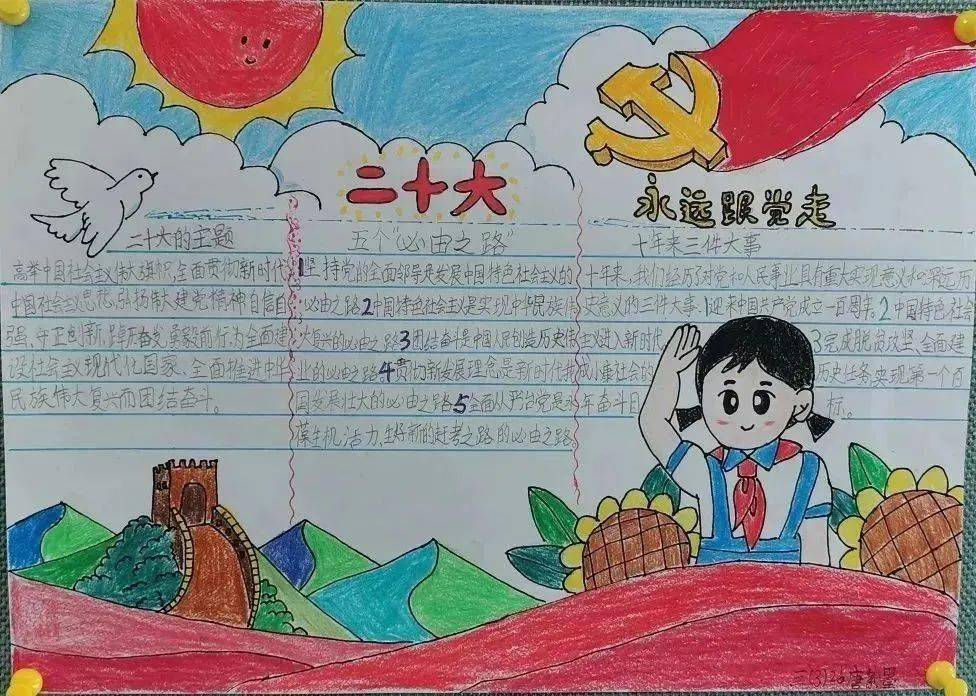 二十大
永远跟党走
二十大的主题
高举中国社会主伟大旗帜,全面贯彻新时代
中国社会主思,弘扬伟大建党精神自信自
强、守正创新,踔厉奋发勇毅前行,为全面建
设社会主义现代化国家、全面推进中华
民族伟大复兴而团结奋斗。
五个“必由之路”
1坚持党的全面领导是发展中国特色社会主义的
必由之路2中国特色社会主义是实现中华民族伟
大复兴的必由之路3团结奋斗是中国人民创造历史伟
业的必由之路4贯彻新发展理念是新时代我
国发展壮大的必由之路5全面从严治党是永
葆生机活力,好新的赶考之路的必由之路
十年来三件大事
十年来,我们经历了对党和人民事业具有重大实现意义和深远历
史意义的三件大事:1迎来中国共产党成立一百周年。2中国特色社会
主义进入新时代。3完成脱贫攻坚、全面建
成小康社会的历史任务实现第一个百
年奋斗目标。
三(3)26